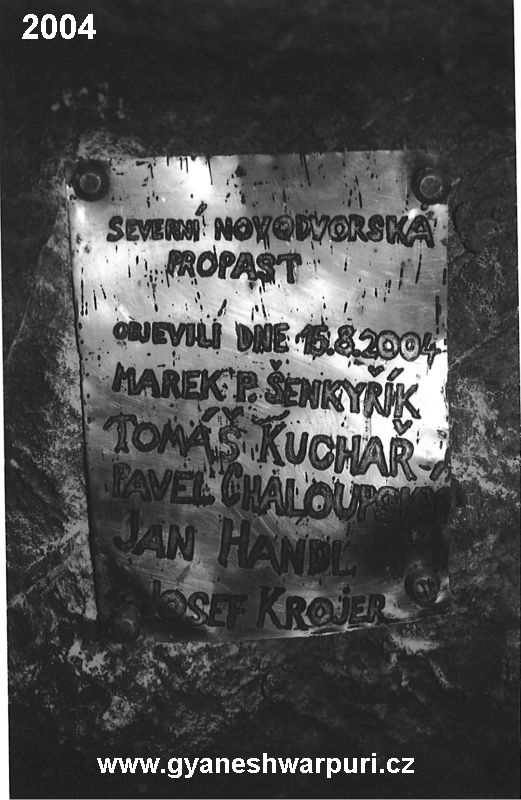 2004
SEVERNÍ NOVODVORSKÁ
PROPAST
OBJEVILI DNE 15.8.2004
MAREK P. ŠENKYŘÍK
TOMÁŠ KUCHAŘ
PAVEL CHALOUPSKÝ
JAN HANDL
JOSEF KROJER
www.gyaneshwarpuri.cz